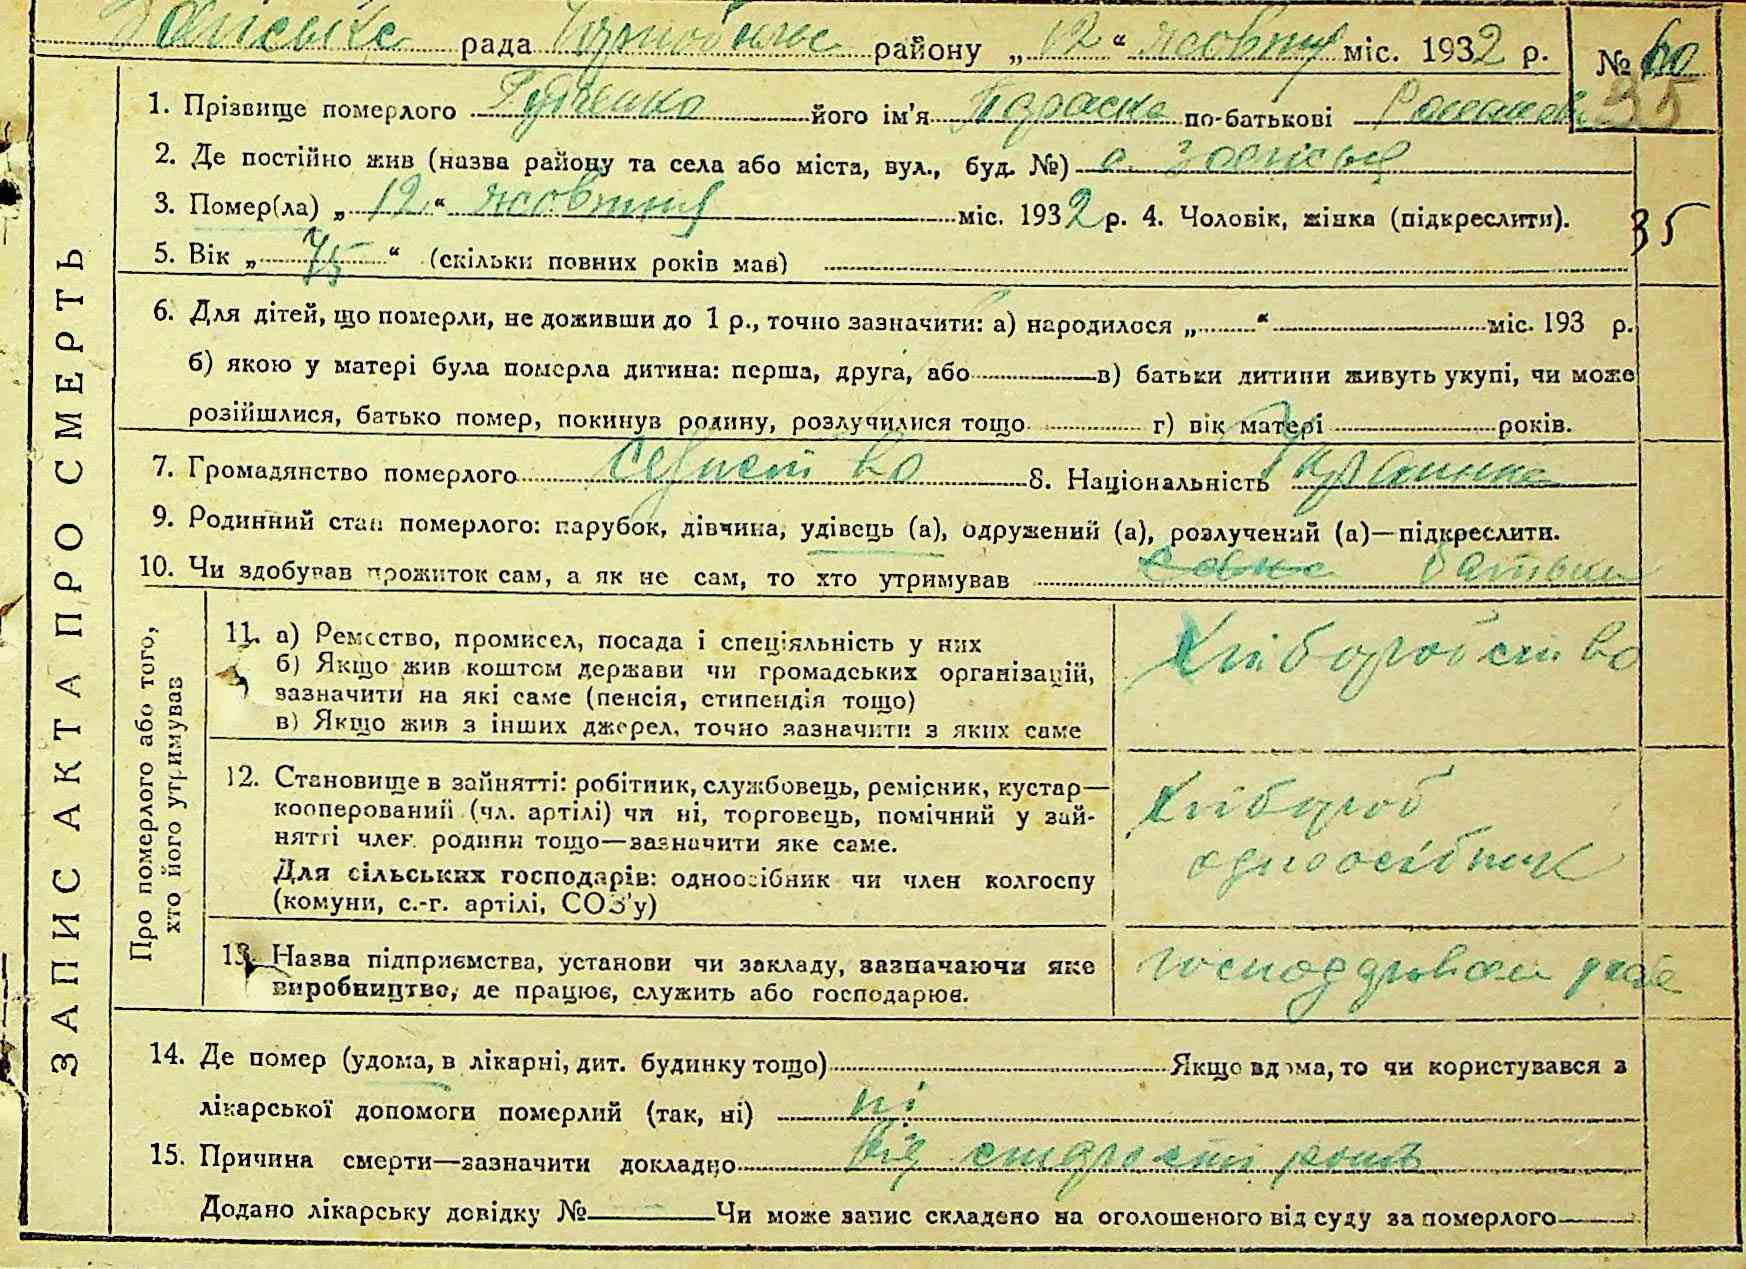 рада Чорнобильс району „12“ жовтня міс. 1932 р. № 60
35
1. Прізвище померлого його ім'я Параска по-батькові
2. Де постійно жив (назва району та села або міста, вул., буд. №) с.
3. Помер(ла) „12“ жовтня міс. 1932 р. 4. Чоловік, жінка (підкреслити).
35
5. Вік „75“ (скільки повних років мав)
6. Для дітей, що померли, не доживши до 1 р., точно зазначити: а) народилося „ “ міс. 193 р.
б) якою у матері була померла дитина: перша, друга, або в) батьки дитини живуть укупі, чи може
розійшлися, батько помер, покинув родину, розлучилися тощо г) вік матері років.
7. Громадянство померлого 8. Національність Українка
9. Родинний стан померлого: парубок, дівчина, удівець (а), одружений (а), розлучений (а)—підкреслити.
10. Чи здобував прожиток сам, а як не сам, то хто утримував
ЗАПИС АКТА ПРО СМЕРТЬ
Про померлого або того,
хто його утримував
11. а) Ремество, промисел, посада і спеціяльність у них
б) Якщо жив коштом держави чи громадських організацій,
зазначити на які саме (пенсія, стипендія тощо)
в) Якщо жив з інших джерел, точно зазначити з яких саме
Хліборобство
12. Становище в зайнятті: робітник, службовець, ремісник, кустар—
кооперований (чл. артілі) чи ні, торговець, помічний у зай-
нятті член родини тощо—зазначити яке саме.
Для сільських господарів: одноосібник чи член колгоспу
(комуни, с.-г. артілі, СОЗ'у)
Хлібороб
одноосібник
13. Назва підприємства, установи чи закладу, зазначаючи яке
виробництво, де працює, служить або господарює.
14. Де помер (удома, в лікарні, дит. будинку тощо) Якщо вдома, то чи користувався з
лікарської допомоги померлий (так, ні) ні
15. Причина смерти—зазначити докладно від старости років
Додано лікарську довідку № Чи може запис складено на оголошеного від суду за померлого